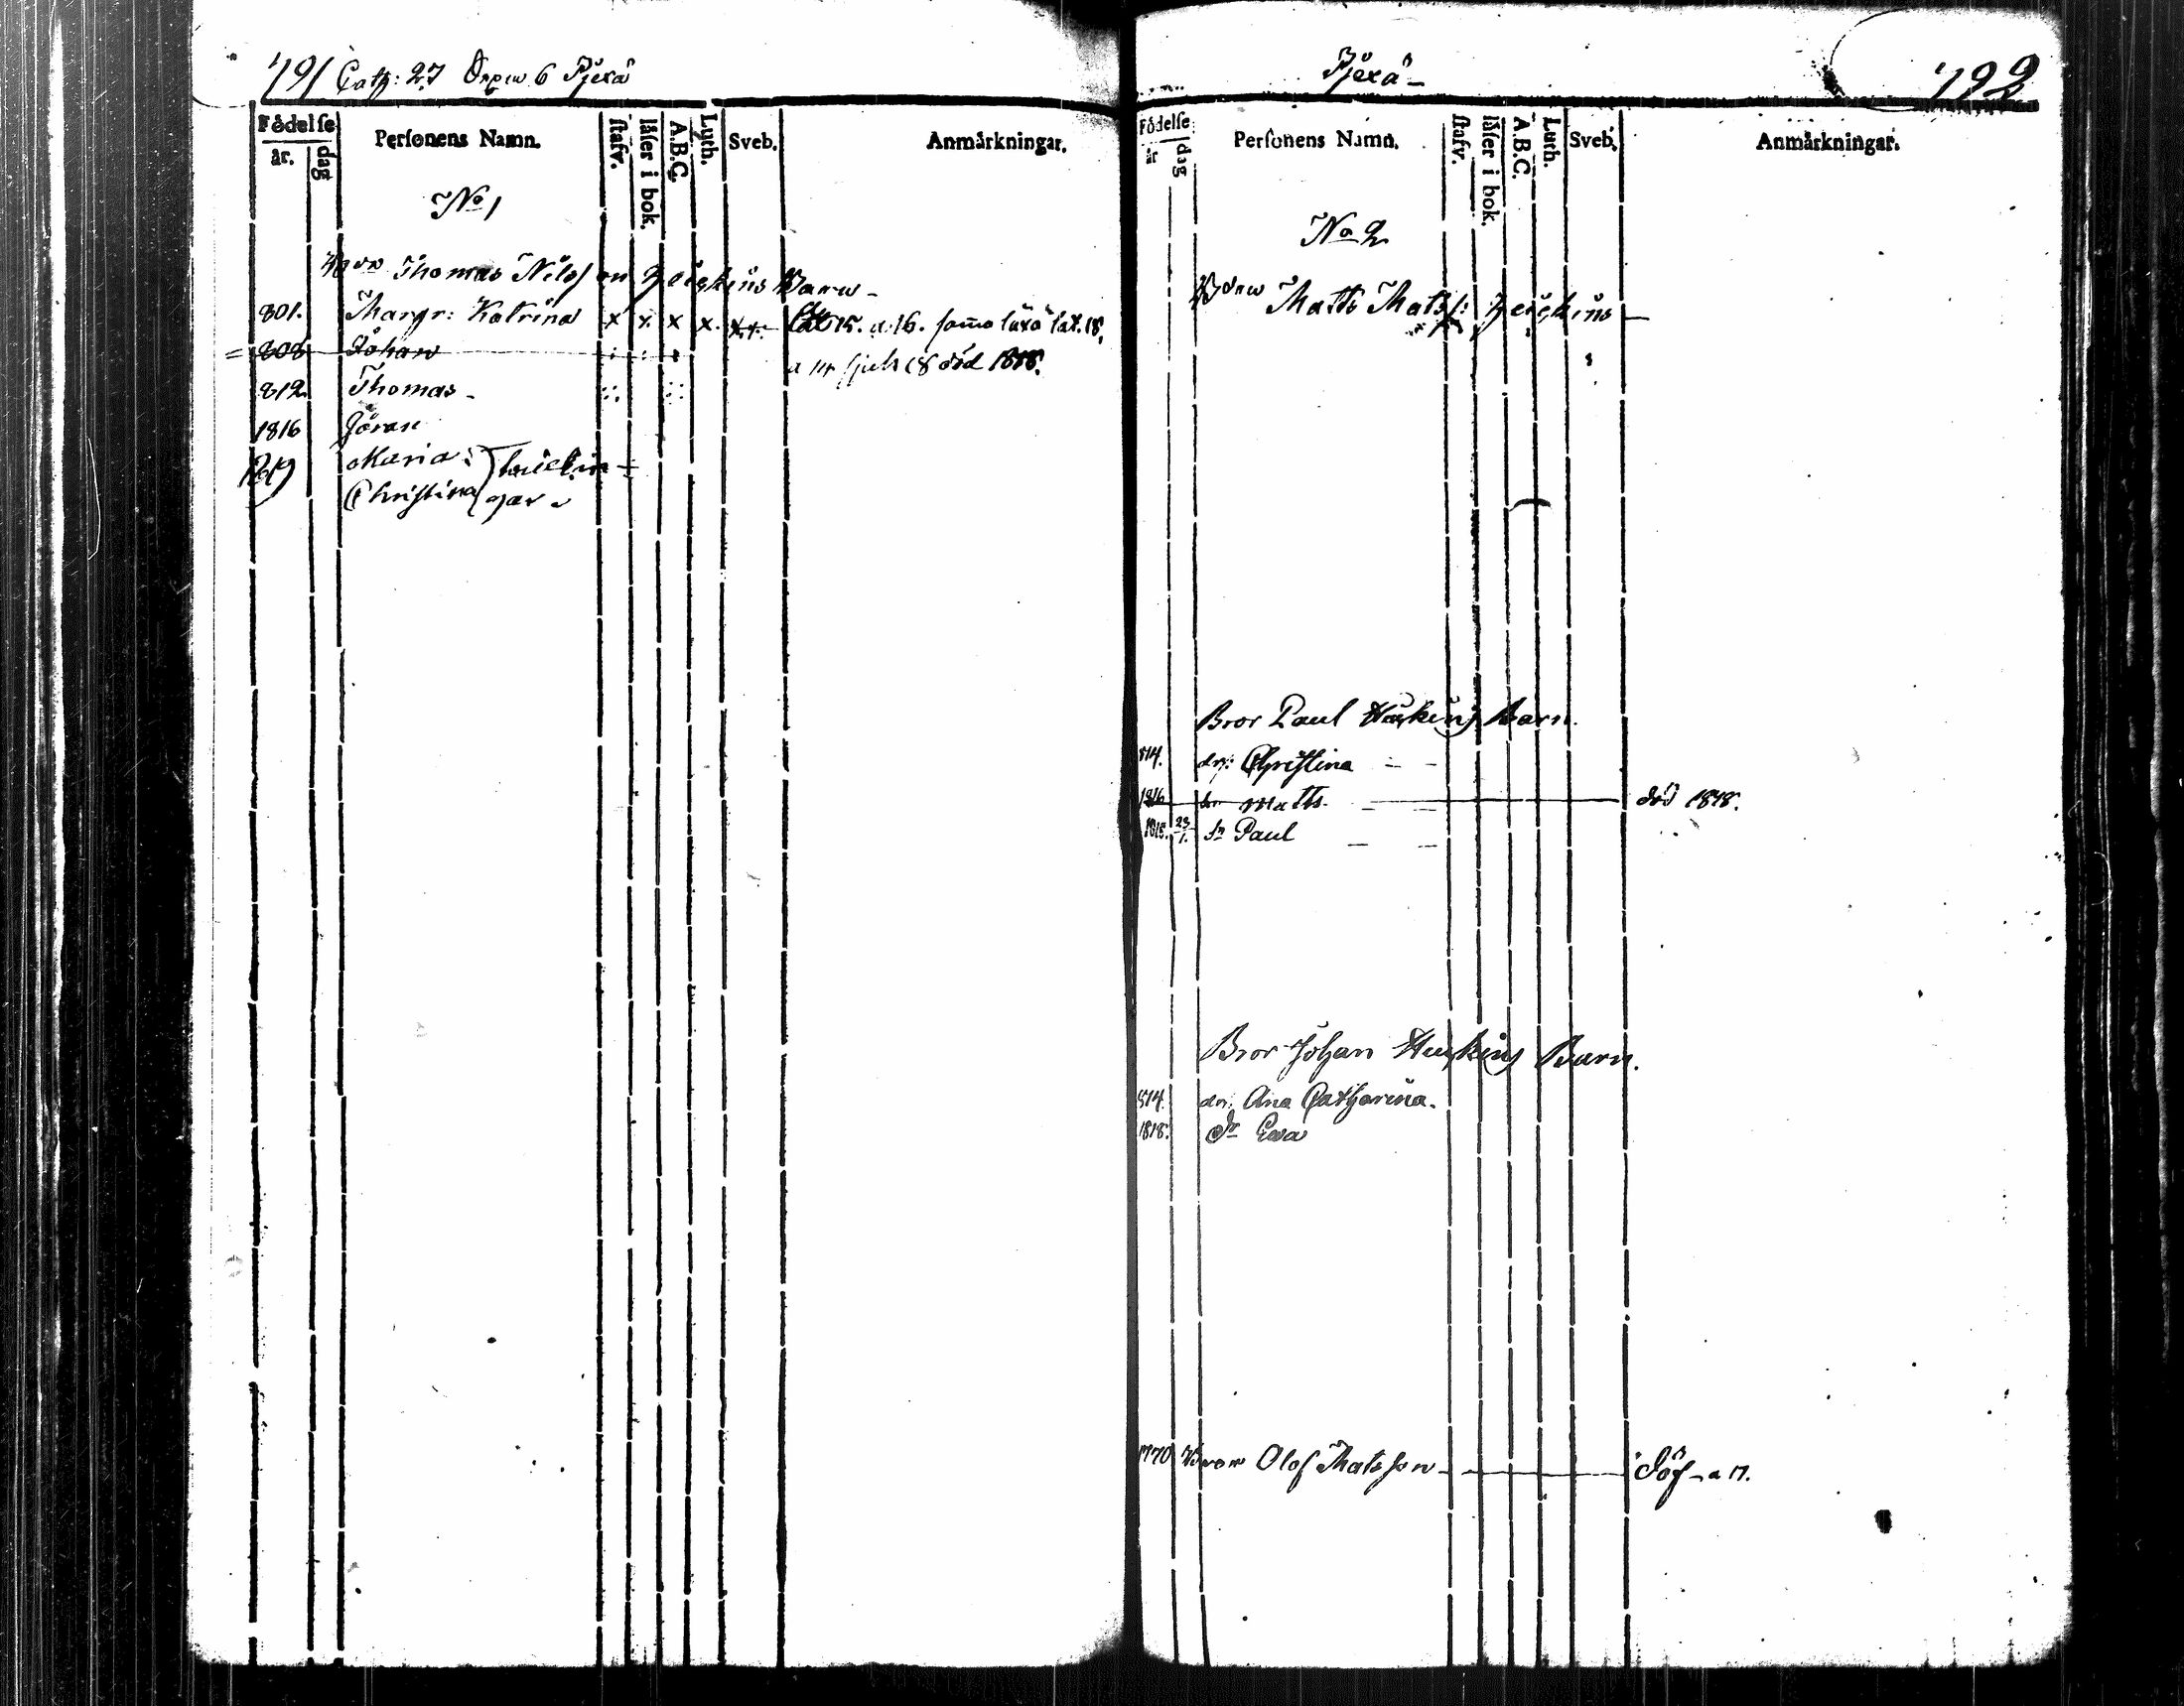 791 Cath: 27 Öppw 6 Pjexä
Födelse
år. dag
Personens Namn.
stafv.
läser i bok.
A.B.C.
Luth.
Sveb.
Anmärkningar.
No 1
Thomas Nilsson Heickins Barn
801. Margr: Katrina x x x x 15. a. 16. samo läxa 18.
808 Johan död 1818.
812 Thomas
1816 Göran
1819 Maria
Christina
Pjexä
792
Födelse
år dag
Personens Namn.
stafv.
läser i bok.
A.B.C.
Luth.
Sveb.
Anmärkningar.
No 2
Matts Mats: Heickins
Bror Paul Barn.
814. dr: Christina
1816 Matts död 1818.
1818. 23/1. Sn Paul
Bror Johan Barn.
814. dr: Ana Catharina.
1818. Dr Ewa
1770 Olof Matsson